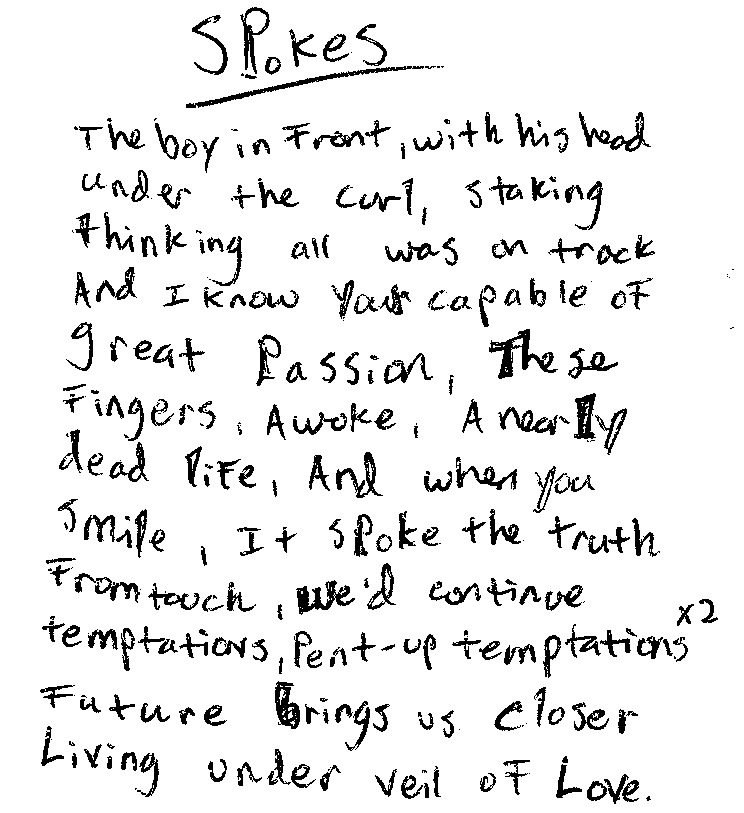 SPokes
The boy in Front, with his head
under the curl, staking
thinking all was on track
And I know Your capable of
great Passion, These
Fingers, Awoke, A nearly
dead life, And when you
smile, It spoke the truth
From touch, we'd continue
temptations, Pent-up temptations x2
Future brings us closer
Living under veil of Love.